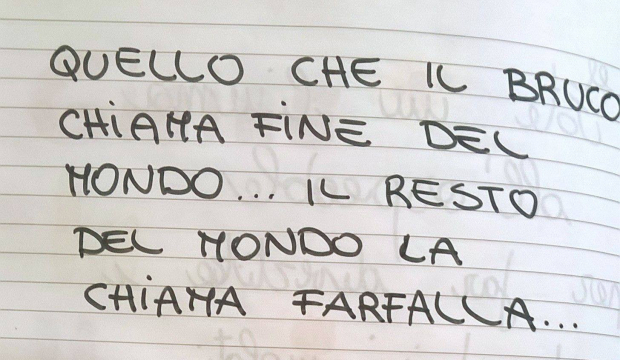 QUELLO CHE IL BRUCO
CHIAMA FINE DEL
MONDO... IL RESTO
DEL MONDO LA
CHIAMA FARFALLA...